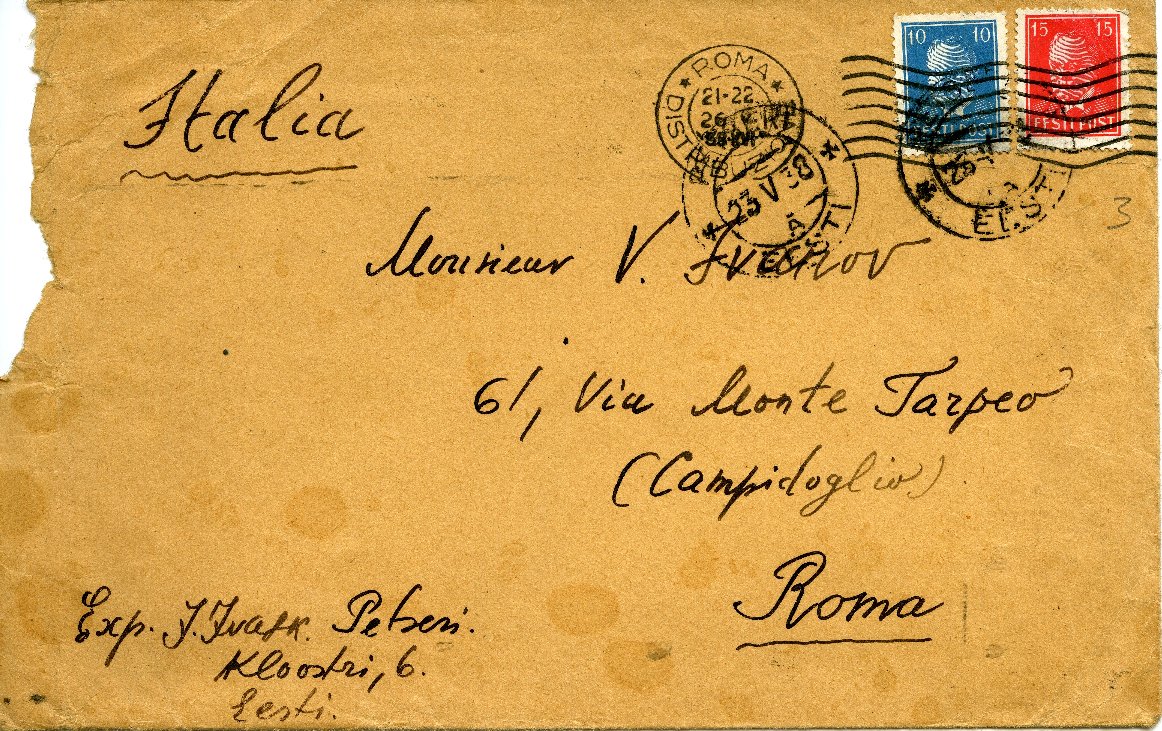 10 10
EESTI POST
15 15
EESTI POST
ROMA
21-22
26
DISTRIB
23 V 38
EESTI
EESTI
3
Italia
Monsieur V. Ivanov
61, Via Monte Tarpeo
(Campidoglio)
Roma
Exp. J. Ivask. Petseri.
Kloostri, 6.
Eesti.